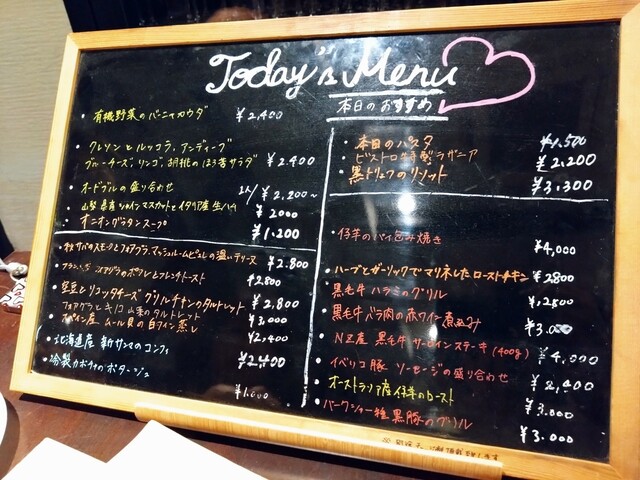 Today's Menu
本日のおすすめ
有機野菜のバーニャカウダ ¥2,400
クレソンとルッコラ、アンディーブ
ブルーチーズ、リンゴ、胡桃のほろ苦サラダ ¥2.400
オードブルの盛り合わせ 1人/¥2,200~
山梨県産シャインマスカットとイタリア産生ハム ¥2000
オニオングラタンスープ ¥1,200
フォアグラ、マッシュルームピュレの温いテリーヌ ¥2.800
フォアグラのポワレとフレンチトースト ¥2800
リコッタチーズ グリルチキンのタルトレット ¥2,800
フォアグラとキノコ のタルトレット ¥3,000
スペイン産 ムール貝の白ワイン蒸し ¥2,400
北海道産 新サンマのコンフィ ¥2,400
冷製カボチャのポタージュ ¥1.000
本日のパスタ ¥1,500
ビストロ牛特製ラザニア ¥2,200
黒トリュフのリゾット ¥3,300
仔羊のパイ包み焼き ¥4,000
ハーブとガーリックでマリネしたローストチキン ¥2800
黒毛牛 ハラミのグリル ¥2800
黒毛牛 バラ肉の赤ワイン煮込み ¥3.000
NZ産 黒毛牛 サーロインステーキ (400g) ¥4,000
イベリコ豚 ソーセージの盛り合わせ ¥2,400
オーストラリア産仔羊のロースト ¥3.000
バークシャー種黒豚のグリル ¥3.000